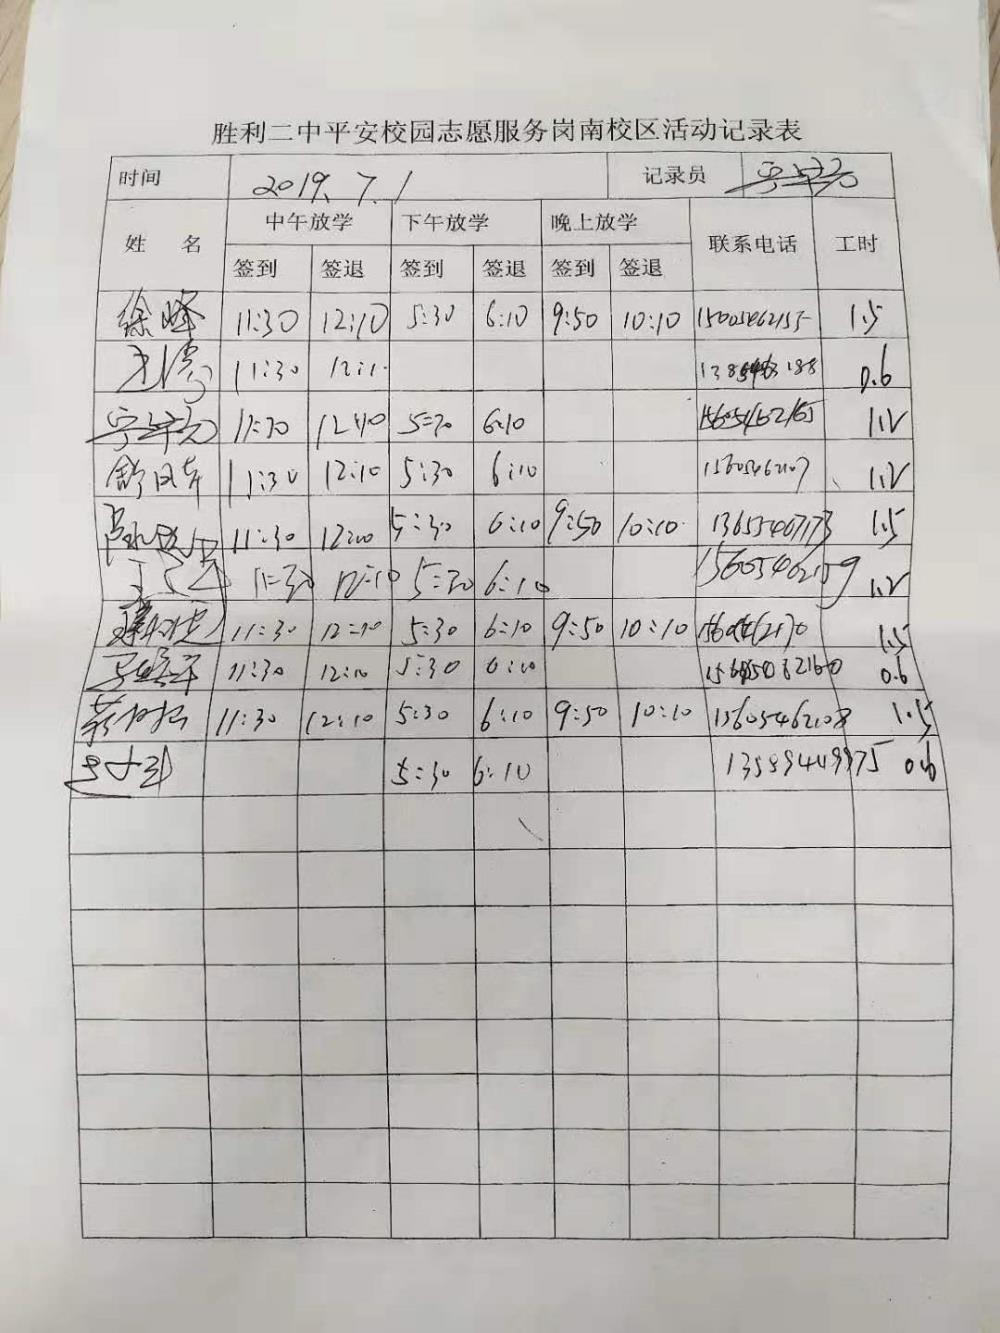 胜利二中平安校园志愿服务岗南校区活动记录表
时间 2019.7.1 记录员
姓 名 中午放学 下午放学 晚上放学 联系电话 工时
签到 签退 签到 签退 签到 签退
徐峰 11:30 12:10 5:30 6:10 9:50 10:10 15005462155 1.5
11:30 12:10 0.6
11:30 12:10 5:30 6:10 15605462165 1.2
舒凤本 11:30 12:10 5:30 6:10 1.2
11:30 12:10 5:30 6:10 9:50 10:10 13655467173 1.5
11:30 12:10 5:30 6:10 15605462159 1.2
11:30 12:10 5:30 6:10 9:50 10:10 1.5
11:30 12:10 5:30 6:10 0.6
11:30 12:10 5:30 6:10 9:50 10:10 15605462108 1.5
5:30 6:10 13589449975 0.6